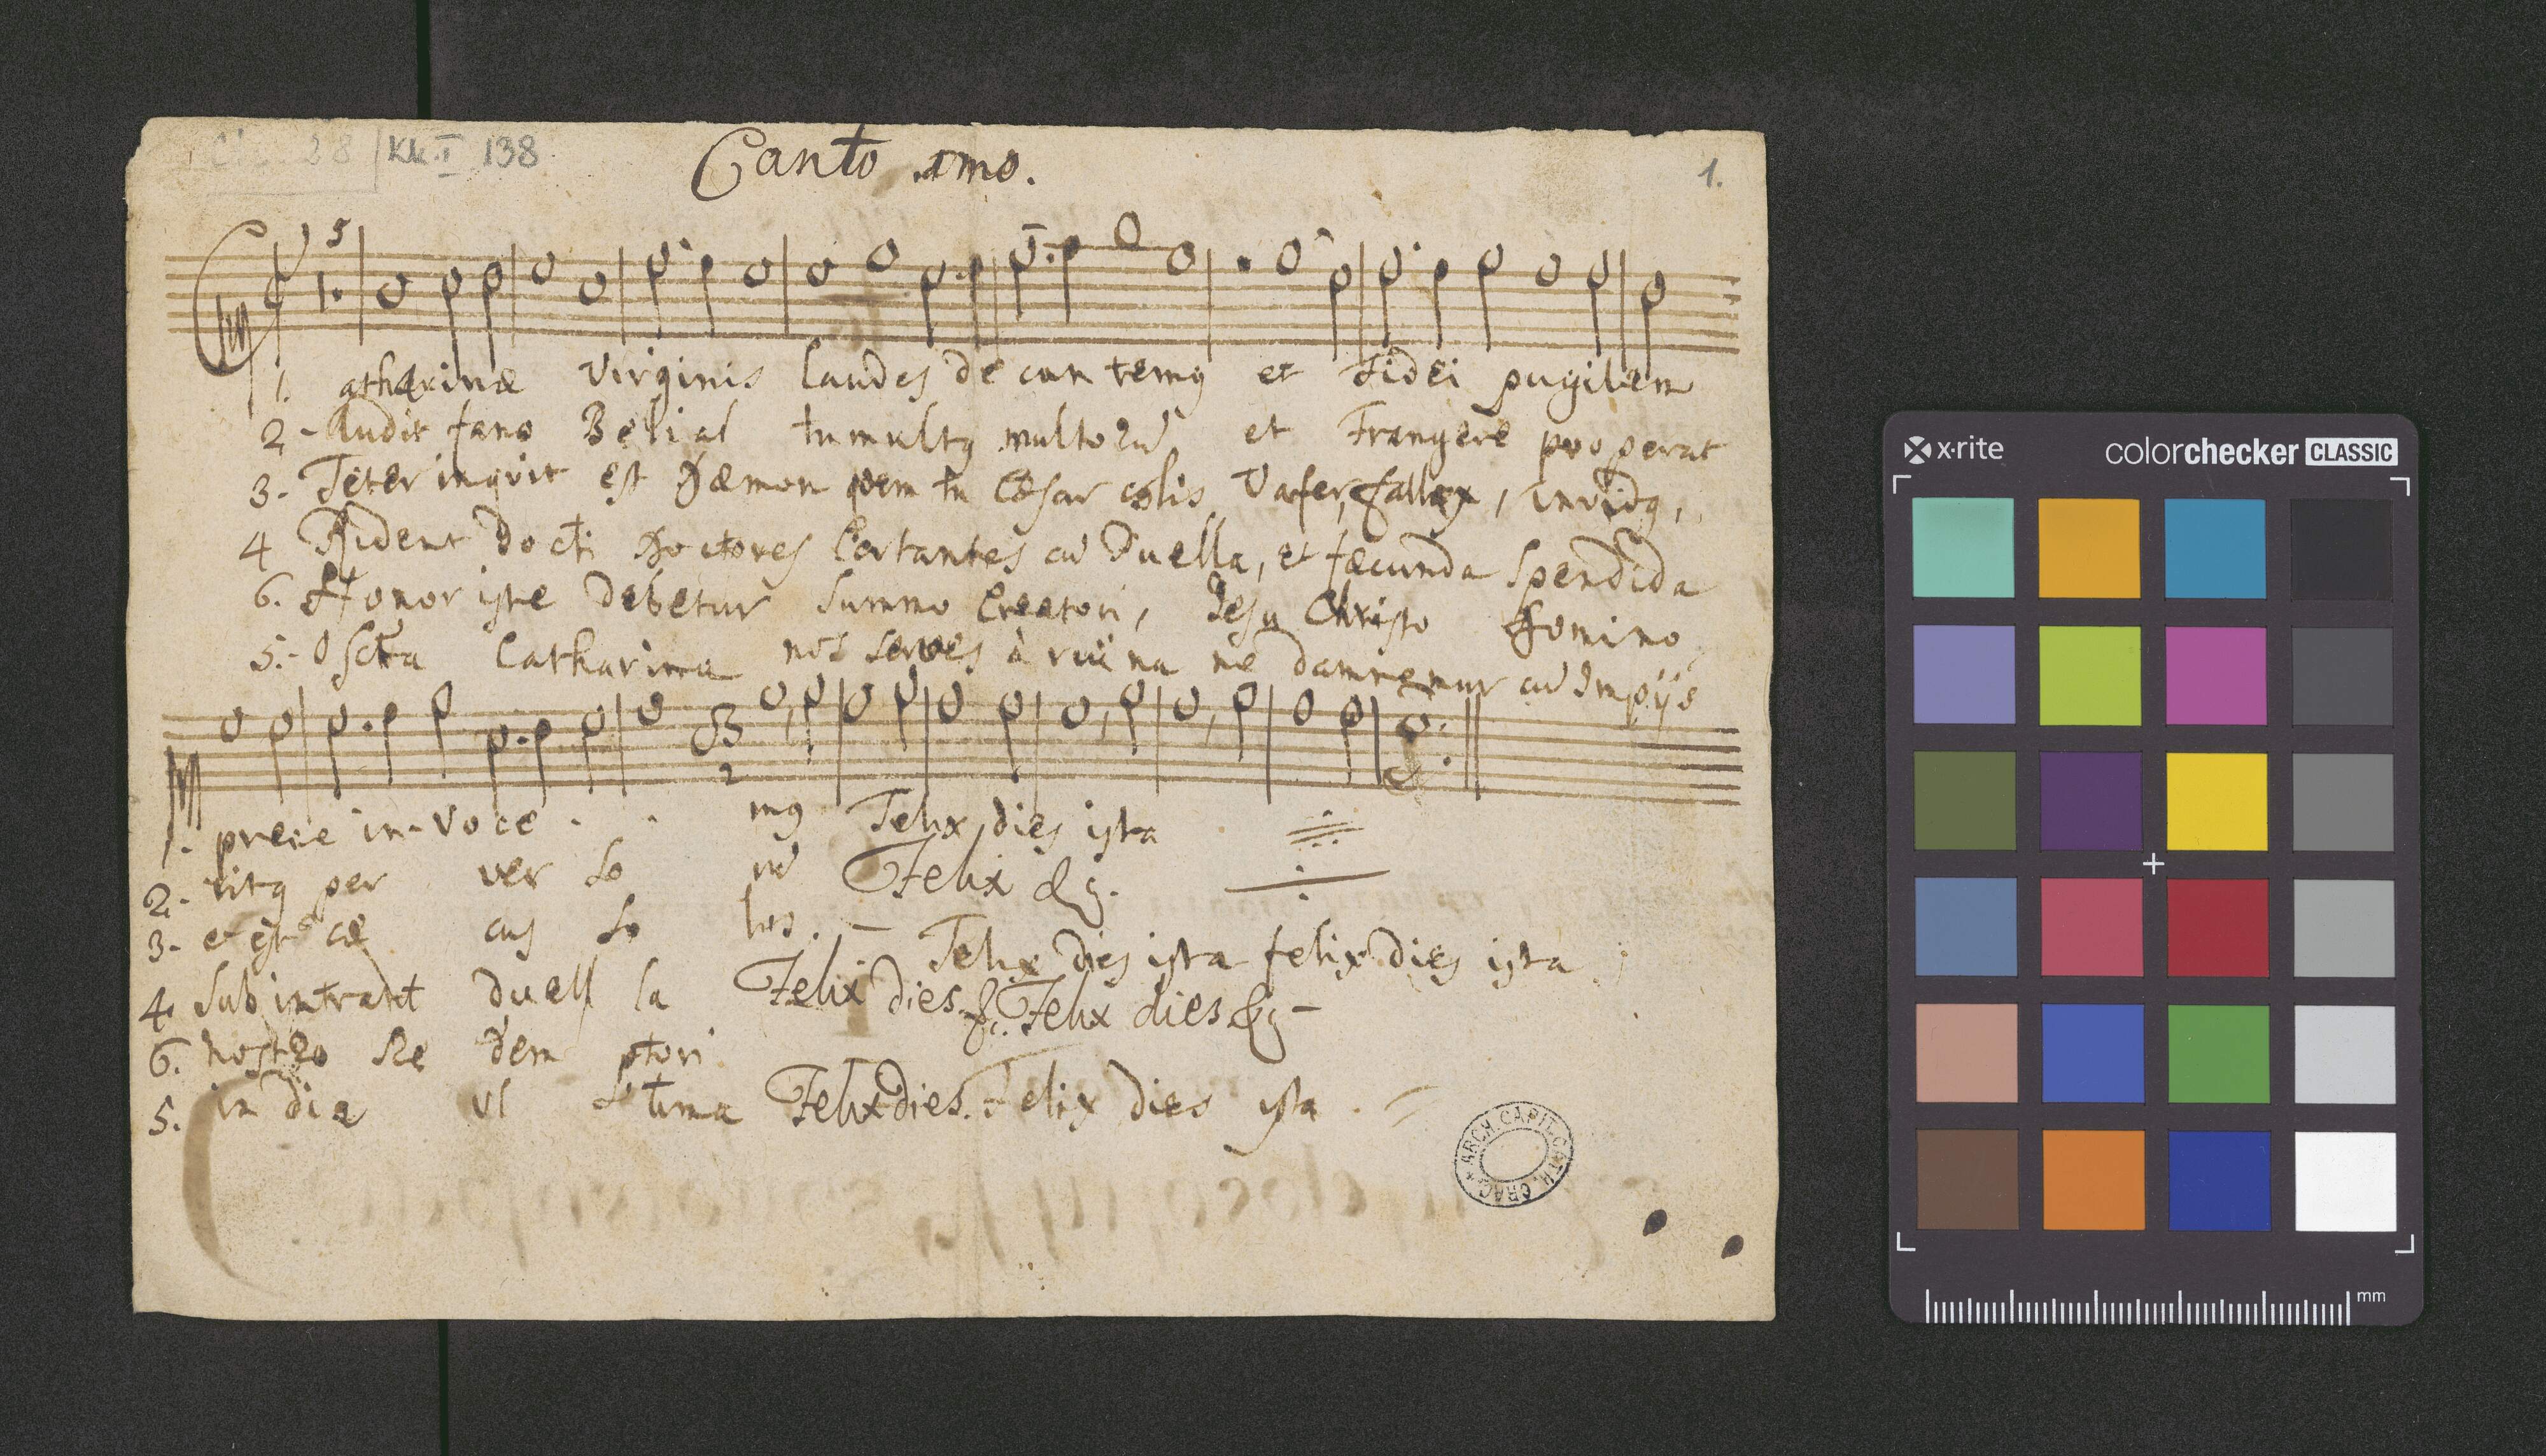 KK.I 138
Canto .1mo.
1.
5
1. Catharinæ Virginis laudes decantemq et Fidei pugilem
2. Audit fano Belial tumultq multorũ et Frangere properat
3. Teter inquit est Dæmon quem tu Cæsar colis, Vafer, fallax, invidq,
4 Rident docti Doctores Certantes cũ Duella, et fæcunda Spendida
6. Honor iste Debetur Summo Creatori, Jesu Christo Domino,
5. O Scta Catharina nos serves à ruina ne damnemur cũ Impijs
3
2
1. prece in-voce - - mq Felix dies ista
2. ritq per ver so rũ Felix &c.
3. et est cæ cus so lus. – Felix dies ista felix dies ista
4. Subintrant duell la Felix dies &c. Felix dies &c –
6. nostro Re dem ptori
5. in die ul tima Felix dies. Felix dies ista
ARCH. CAPIT. CATH. CRAC.
x-rite
colorchecker CLASSIC
mm